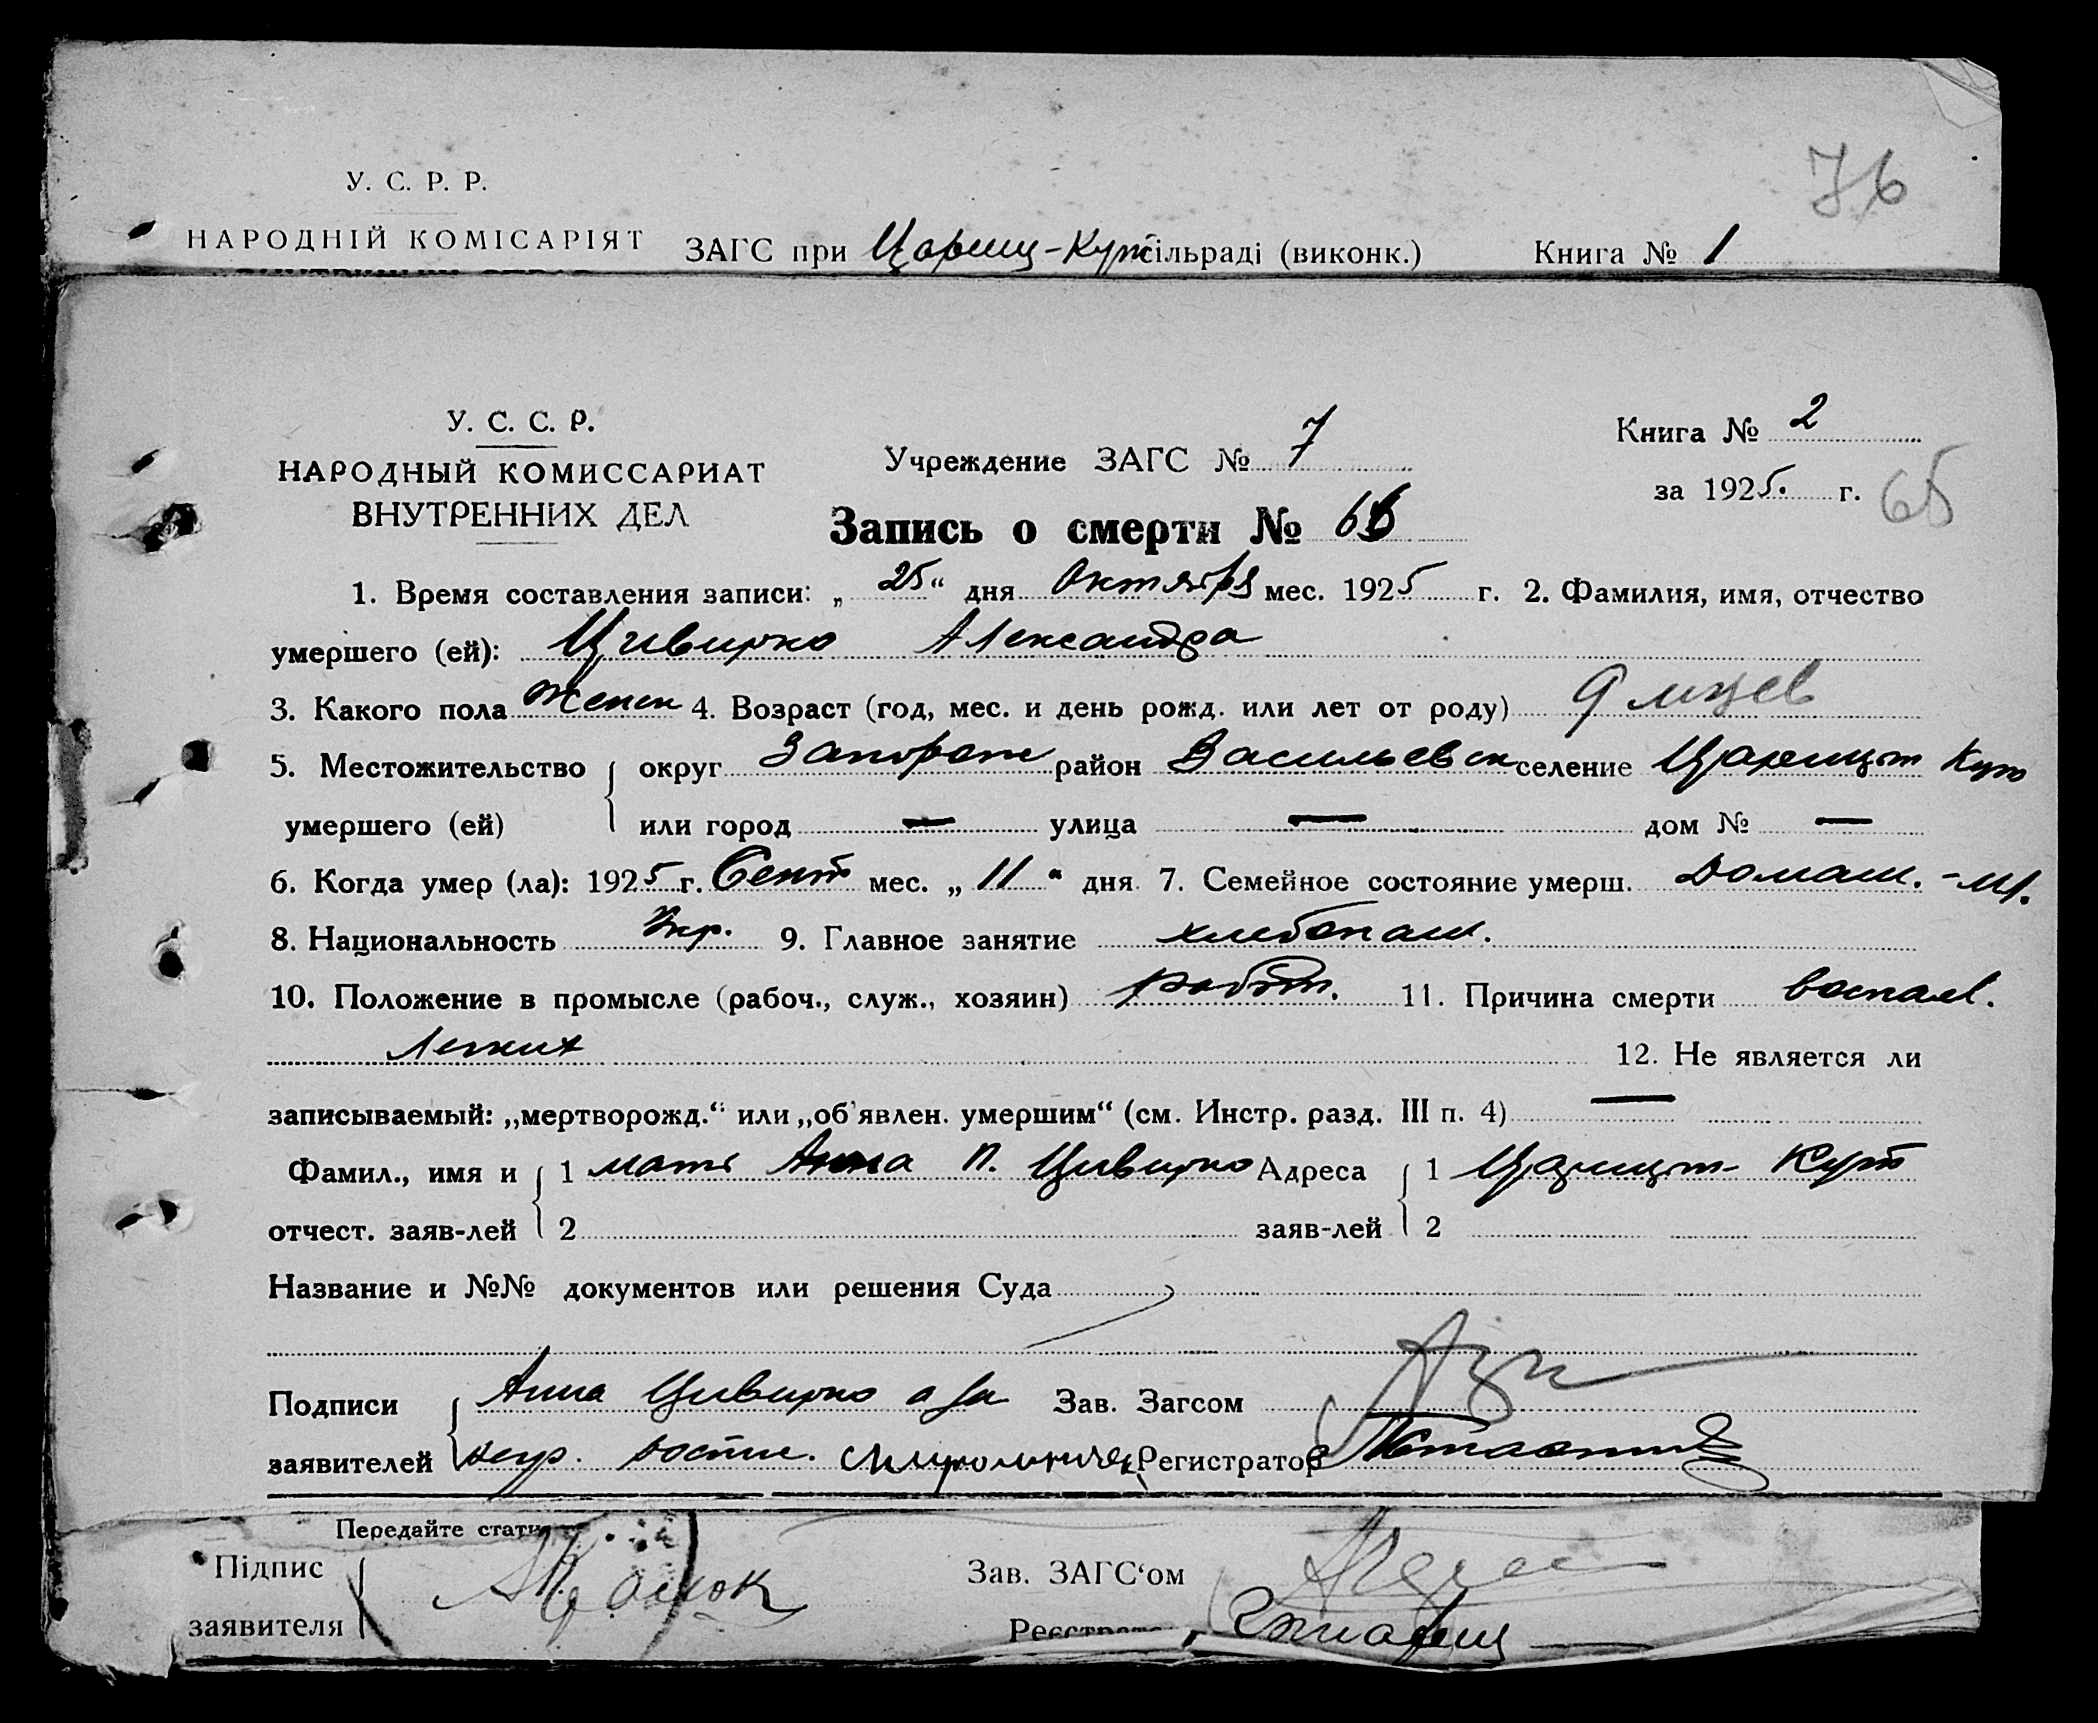 76
У. С. Р. Р.
НАРОДНІЙ КОМІСАРІЯТ ЗАГС при Цариц-Кут сільраді (виконк.) Книга № 1
У. С. С. Р.
НАРОДНЫЙ КОМИССАРИАТ
ВНУТРЕННИХ ДЕЛ
Учреждение ЗАГС № 7
Книга № 2
за 1925. г. 65
Запись о смерти № 66
1. Время составления записи: „ 25 “ дня Октября мес. 1925 г. 2. Фамилия, имя, отчество
умершего (ей): Цивирко Александра
3. Какого пола женск 4. Возраст (год, мес. и день рожд. или лет от роду) 9 мцев
5. Местожительство округ Запорож район Васильевск селение Царицын Кут
умершего (ей) или город — улица — дом № —
6. Когда умер (ла): 1925 г. Сент мес. „ 11 “ дня 7. Семейное состояние умерш. Домаш.
8. Национальность Укр. 9. Главное занятие хлебопаш.
10. Положение в промысле (рабоч., служ., хозяин) работ. 11. Причина смерти воспал.
Легких 12. Не является ли
записываемый: „мертворожд.“ или „об'явлен. умершим“ (см. Инстр. разд. III п. 4) —
Фамил., имя и 1 мать Анна П. Цивирко Адреса 1 Царицын- Кут
отчест. заяв-лей 2 заяв-лей 2
Название и №№ документов или решения Суда
Подписи Анна Цивирко а за Зав. Загсом
заявителей негр. Регистратор
Передайте стати
Підпис Зав. ЗАГС‘ом
заявителя Реєстрато